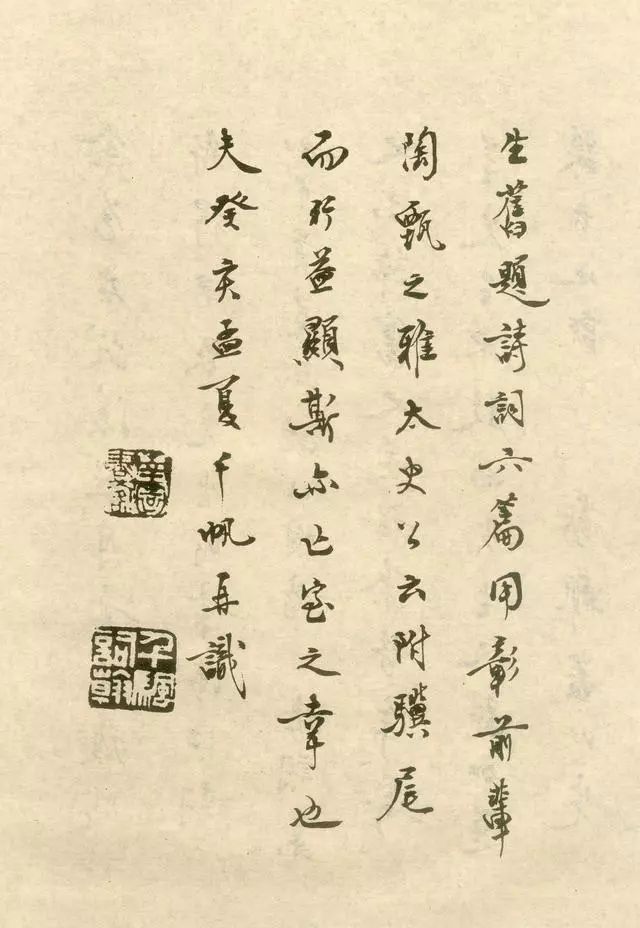 生舊題詩詞六篇用彰前輩
陶甄之雅太史公云附驥尾
而行益顯斯亦亡室之幸也
夫癸亥孟夏千帆再識
千颿詞翰